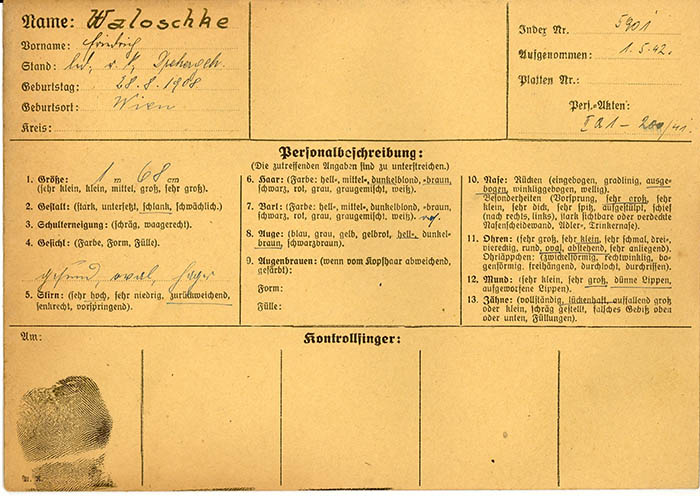 Name: Waloschke
Vorname: Friedrich
Stand: led., r. k., Dreher
Geburtstag: 28. 8. 1908
Geburtsort: Wien
Kreis:
Index Nr. 5901
Aufgenommen: 1. 5. 42.
Platten Nr.:
Pers.-Akten:
Personalbeschreibung:
(Die zutreffenden Angaben sind zu unterstreichen.)
1. Größe: 1 m 68 cm
(sehr klein, klein, mittel, groß, sehr groß).
2. Gestalt: (stark, untersetzt, schlank, schwächlich.)
3. Schulterneigung: (schräg, waagerecht.)
4. Gesicht: (Farbe, Form, Fülle).
gesund, oval, hager
5. Stirn: (sehr hoch, sehr niedrig, zurückweichend,
senkrecht, vorspringend).
6. Haar: (Farbe: hell-, mittel-, dunkelblond, -braun,
schwarz, rot, grau, graugemischt, weiß).
7. Bart: (Farbe: hell-, mittel-, dunkelblond, -braun,
schwarz, rot, grau, graugemischt, weiß).
8. Auge: (blau, grau, gelb, gelbrot, hell-, dunkel-
braun, schwarzbraun).
9. Augenbrauen: (wenn vom Kopfhaar abweichend,
gefärbt):
Form:
Fülle:
10. Nase: Rücken (eingebogen, gradlinig, ausge-
bogen, winkliggebogen, wellig).
Besonderheiten (Vorsprung, sehr groß, sehr
klein, sehr dick, sehr spitz, aufgestülpt, schief
(nach rechts, links), stark sichtbare oder verdeckte
Nasenscheidewand, Adler-, Trinkernase).
11. Ohren: (sehr groß, sehr klein, sehr schmal, drei-,
viereckig, rund, oval, abstehend, sehr anliegend).
Ohrläppchen: (zwickelförmig, rechtwinklig, bo-
genförmig, freihängend, durchlocht, durchrissen).
12. Mund: (sehr klein, sehr groß, dünne Lippen,
aufgeworfene Lippen).
13. Zähne: (vollständig, lückenhaft, auffallend groß
oder klein, schräg gestellt, falsches Gebiß oben
oder unten, Füllungen).
Am:
Kontrollfinger: